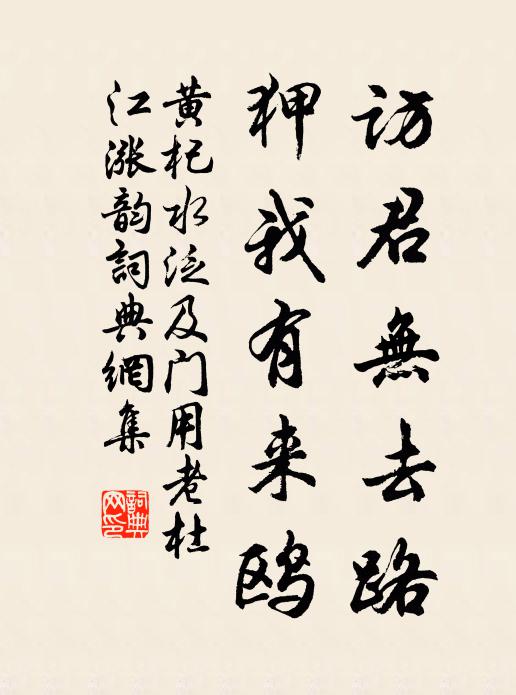 访君無去路
狎我有来鸥
黄杞水泛及门用老杜
江涨韵詞典網集
詞典网印